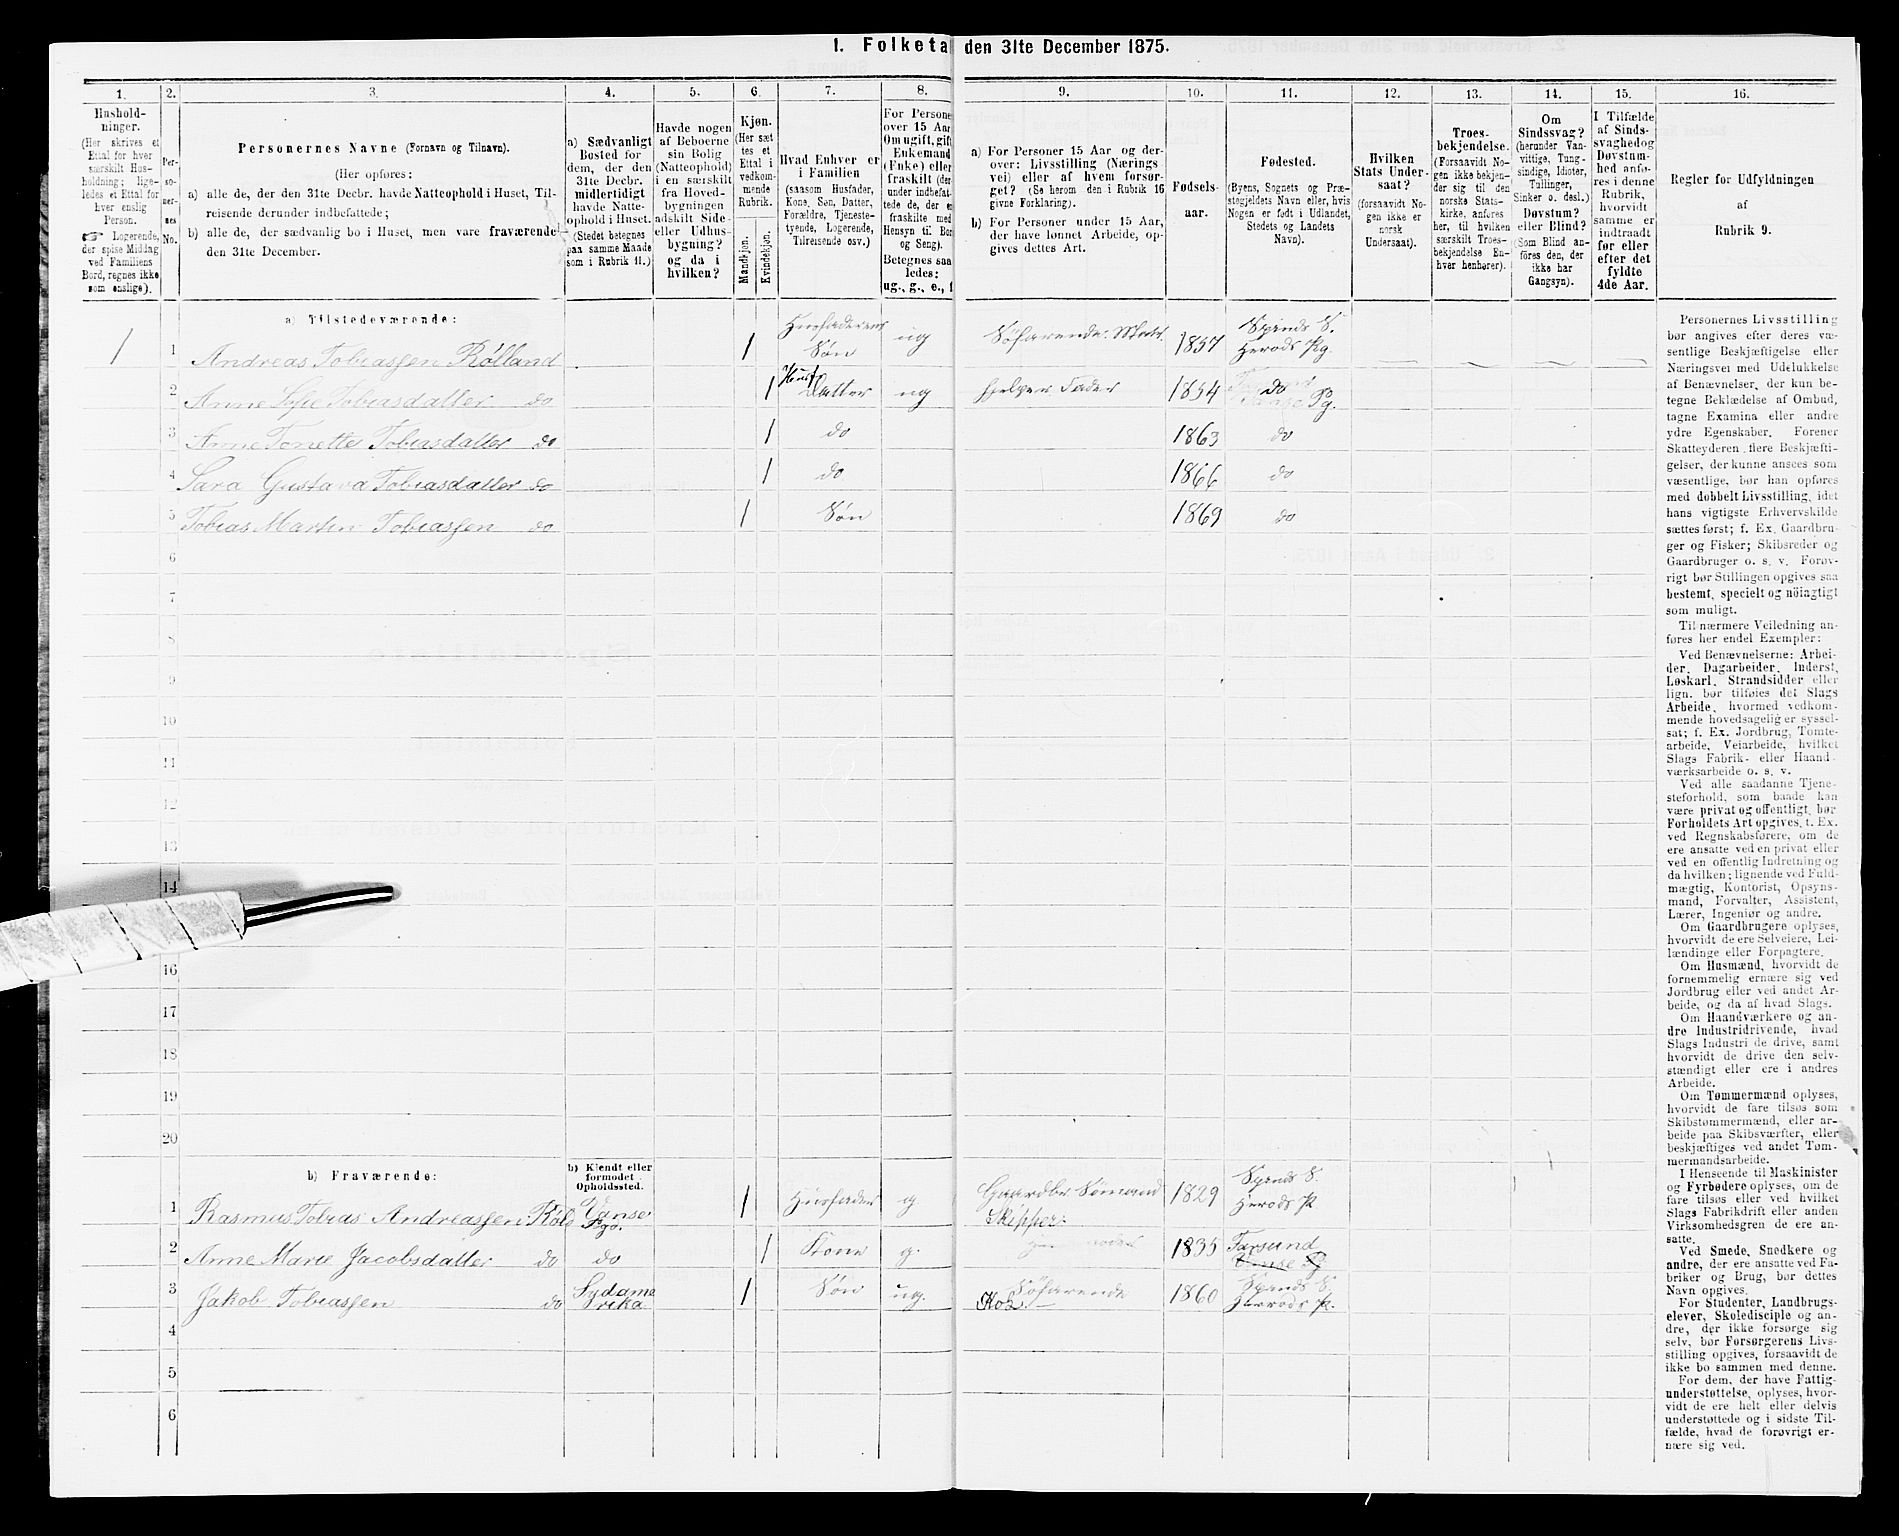 1. Folketa den 31te December 1875.
1. 2. 3. 4. 5. 6. 7. 8. 9. 10. 11. 12. 13. 14. 15. 16.
Hushold-
ninger.
(Her skrives et
Ettal for hver
særskilt Hus-
holdning; lige-
ledes et Ettal for
hver enslig
Person.
☞ Logerende,
der spise Middag
ved Familiens
Bord, regnes ikke
som enslige).
Per-
so-
ner-
nes
No.
Personernes Navne (Fornavn og Tilnavn).
(Her opføres:
a) alle de, der den 31te Decbr. havde Natteophold i Huset, Til-
reisende derunder indbefattede;
b) alle de, der sædvanlig bo i Huset, men vare fraværende
den 31te December.
a) Sædvanligt
Bosted for
dem, der den
31te Decbr.
midlertidigt
havde Natte-
ophold i Huset.
(Stedet betegnes
paa samme Maade
som i Rubrik 11.)
Havde nogen
af Beboerne
sin Bolig
(Natteophold)
i en særskilt
fra Hoved-
bygningen
adskilt Side-
eller Udhus-
bygning?
og da i
hvilken?
Kjøn.
(Her sæt
tes et
Ettal i
vedkom-
mende
Rubrik.
Mandkjøn.
Kvindekjøn.
Hvad Enhver er
i Familien
(saasom Husfader,
Kone, Søn, Datter,
Forældre, Tjeneste-
tyende, Logerende,
Tilreisende osv.)
For Persone
over 15 Aar
Om ugift, gift
Enkemand
(Enke) eller
fraskilt (der-
under indbefat-
tede de, der ere
fraskilte med
Hensyn til Bor
og Seng).
Betegnes saa
ledes:
ug., g., e., f
a) For Personer 15 Aar og der-
over: Livsstilling (Nærings
vei) eller af hvem forsør-
get? (Se herom den i Rubrik 16
givne Forklaring).
b) For Personer under 15 Aar,
der have lønnet Arbeide, op-
gives dettes Art.
Fødsels-
aar.
Fødested.
(Byens, Sognets og Præ-
stegjeldets Navn eller, hvis
Nogen er født i Udlandet,
Stedets og Landets
Navn).
Hvilken
Stats Under-
saat?
(forsaavidt No-
gen ikke er
norsk
Undersaat).
Troes-
bekjendelse.
(Forsaavidt No-
gen ikke bekjen-
der sig til den
norske Stats-
kirke, anføres
her, til hvilken
særskilt Troes-
bekjendelse En-
hver henhører).
Om
Sindssvag?
(herunder Van-
vittige, Tung-
sindige, Idioter,
Tullinger,
Sinker o. desl.)
Døvstum?
eller Blind?
(Som Blind an-
føres den, der
ikke har
Gangsyn).
I Tilfælde
af Sinds-
svaghed og
Døvstum-
hed anfø-
res i denne
Rubrik,
hvorvidt
samme er
indtraadt
før eller
efter det
fyldte
4de Aar.
Regler for Udfyldningen
af
Rubrik 9.
a) Tilstedeværende:
1 1 Andreas Tobiassen Rølland 1 Husfaderens Søn ug Søfarende. Matr. 1857 Spinds S. Herods Pg.
2 Anne Sofie Tobiasdatter do 1 Husf Datter ug hjelper Fader 1854 do
3 Anne Tonette Tobiasdatter do 1 do 1863 do
4 Sara Gustava Tobiasdatter do 1 do 1866 do
5 Tobias Martin Tobiassen do 1 Søn 1869 do
6
7
8
9
10
11
12
13
14
16
17
18
19
20
b) Fraværende:
b) Kjendt eller
formodet
Opholdssted.
1 Rasmus Tobias Andreassen Røld Vanse Pgd. 1 Husfader g Gaardbr Sømand Skipper. 1829 Spinds S. Herods P.
2 Anne Marie Jacobsdatter do do 1 Kone g. 1835 Farsund Vanse Pg
3 Jakob Tobiassen do Sydame rika. 1 Søn ug. Søfarende Kok 1860 Spinds S. Herrods P.
4
5
6
Personernes Livsstilling
bør angives efter deres væ-
sentlige Beskjæftigelse eller
Næringsvei med Udelukkelse
af Benævnelser, der kun be-
tegne Bekl­ædelse af Ombud,
tagne Examina eller andre
ydre Egenskaber. Forener
Skatteyderen flere Beskjæfti-
gelser, der kunne ansees som
væsentlige, bør han opføres
med dobbelt Livsstilling, idet
hans vigtigste Erhvervskilde
sættes først; f. Ex. Gaardbru-
ger og Fisker; Skibsreder og
Gaardbruger o. s. v. Forøv-
rigt bør Stillingen opgives saa
bestemt, specielt og nöiagtigt
som muligt.
Til nærmere Veiledning an-
føres her endel Exempler:
Ved Benævnelserne: Arbei-
der, Dagarbeider, Inderst,
Løskarl, Strandsidder eller
lign. bør tilføies det Slags
Arbeide, hvormed vedkom-
mende hovedsagelig er syssel-
sat; f. Ex. Jordbrug, Tomte-
arbeide, Veiarbeide, hvilket
Slags Fabrik- eller Haand-
værksarbeide o. s. v.
Ved alle saadanne Tjene-
steforhold, som baade kan
være privat og offentligt, bør
Forholdets Art opgives, t. Ex.
ved Regnskabsførere, om de
ere ansatte ved en privat eller
ved en offentlig Indretning og
da hvilken; lignende ved Fuld-
mægtig, Kontorist, Opsyns-
mand, Forvalter, Assistent,
Lærer, Ingeniør og andre.
Om Gaardbrugere oplyses,
hvorvidt de ere Selveiere, Lei-
lændinge eller Forpagtere.
Om Husmænd, hvorvidt de
fornemmelig ernære sig ved
Jordbrug eller ved andet Ar-
beide, og da af hvad Slags.
Om Haandværkere og an-
dre Industridrivende, hvad
Slags Industri de drive, samt
hvorvidt de drive den selv-
stændigt eller ere i andres
Arbeide.
Om Tømmermænd oplyses,
hvorvidt de fare tilsøs som
Skibstømmermænd, eller ar-
beide paa Skibsværfter, eller
beskjæftiges ved andet Tøm-
mermandsarbeide.
I Henseende til Maskinister
og Fyrbødere oplyses, om de
fare tilsøs eller ved hvilket
Slags Fabrikdrift eller anden
Virksomhedsgren de ere an-
satte.
Ved Smede, Snedkere og
andre, der ere ansatte ved Fa-
briker og Brug, bør dettes
Navn opgives.
For Studenter, Landbrugs-
elever, Skoledisciple og an-
dre, der ikke forsørge sig
selv, bør Forsørgerens Livs-
stilling opgives, forsaavidt de
ikke bo sammen med denne.
For dem, der have Fattig-
understøttelse, oplyses, hvor-
vidt de ere helt eller delvis
understøttede og i sidste Til-
fælde, hvad de forøvrigt er-
nære sig ved.